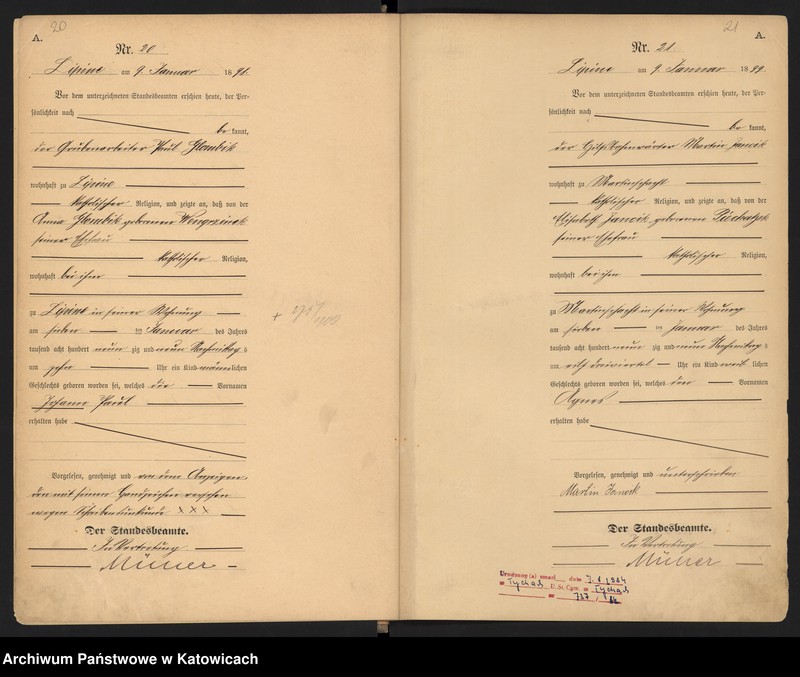 20
A.
Nr. 20
Lipine am 9. Januar 1899.
Vor dem unterzeichneten Standesbeamten erschien heute, der Per-
sönlichkeit nach
be kannt,
der Grubenarbeiter Paul Glombik
wohnhaft zu Lipine
katholischer Religion, und zeigte an, daß von der
Anna Glombik geborenen
seiner Ehefrau
katholischer Religion,
wohnhaft bei ihm
zu Lipine in seiner Wohnung
am sieben ten Januar des Jahres
tausend acht hundert neun zig und neun Nachmittags
um zehn Uhr ein Kind männlichen
Geschlechts geboren worden sei, welches die Vornamen
Johann Paul
erhalten habe
Vorgelesen, genehmigt und von dem Anzeigen-
den mit seinem Handzeichen versehen
wegen Schreibensunkunde XXX
Der Standesbeamte.
In Vertretung
Müller
21
A.
Nr. 21
Lipine am 9. Januar 1899
Vor dem unterzeichneten Standesbeamten erschien heute, der Per-
sönlichkeit nach
be kannt,
der Hilfsbahnwärter Martin
wohnhaft zu Martinschacht
katholischer Religion, und zeigte an, daß von der
Elisabeth geborenen
seiner Ehefrau
katholischer Religion,
wohnhaft bei ihm
zu Martinschacht in seiner Wohnung
am sieben ten Januar des Jahres
tausend acht hundert neun zig und neun Nachmittags
um elf dreiviertel Uhr ein Kind weib lichen
Geschlechts geboren worden sei, welches den Vornamen
Agnes
erhalten habe
Vorgelesen, genehmigt und unterschrieben
Martin
Der Standesbeamte.
In Vertretung
Müller
Urodzony (a) zmarł dnia
w Tychach U. St. Cyw. w Tychach
Archiwum Państwowe w Katowicach